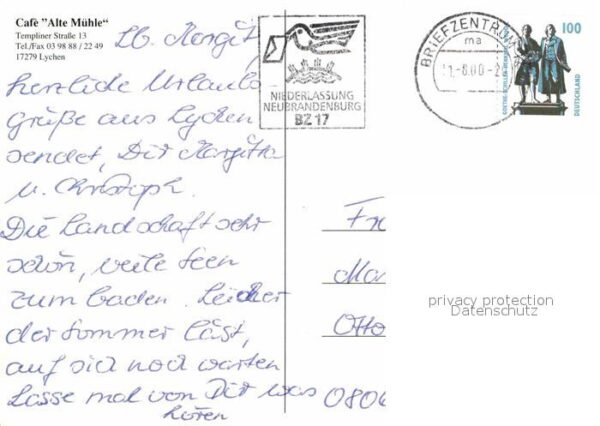 Cafè "Alte Mühle"
Templiner Straße 13
Tel./Fax 03 98 88 / 22 49
17279 Lychen
Lb. Margit,
herzliche Urlaubs
grüße aus Lychen
sendet, Dir Margitta
u. Christoph.
Die Landschaft sehr
schön, viele Seen
zum baden. Leider
der Sommer läst,
auf sich noch warten
Lasse mal von Dir was
hören
NIEDERLASSUNG
NEUBRANDENBURG
BZ 17
BRIEFZENTRUM
ma
-8.00-2
100
DEUTSCHLAND
Fr
Ma
Otto
0806
privacy protection
Datenschutz